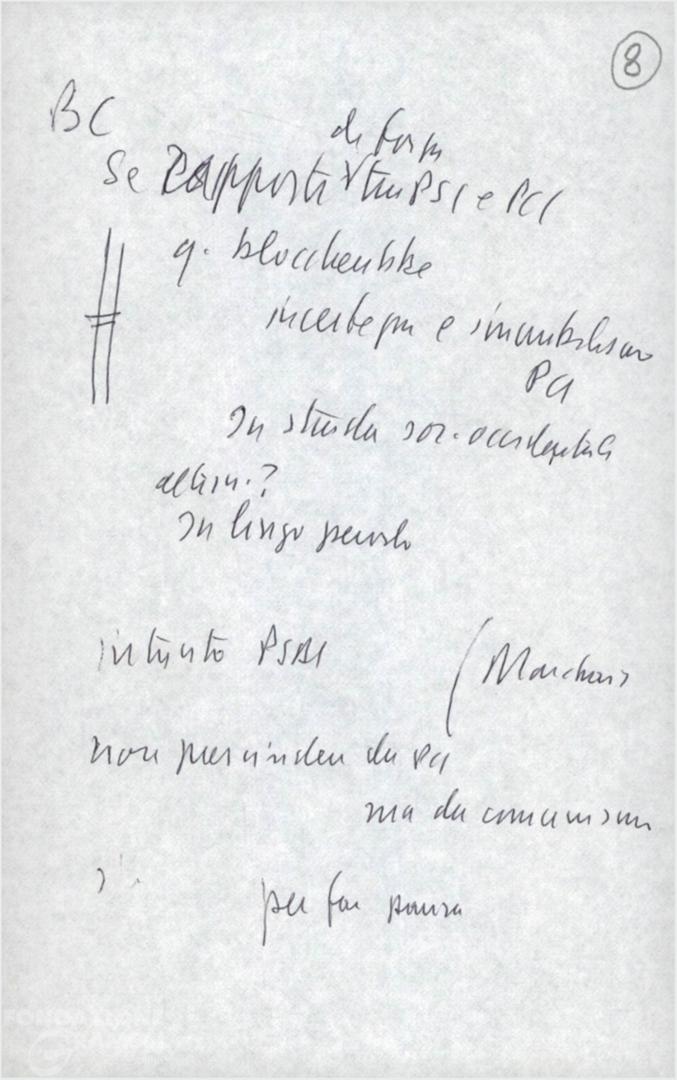 8
BC
di form
Se Rapporti tra PSI e PCI
q. bloccherebbe
incertezza e immobilismo
PCI
In strada soc. occidentale
altern.?
In lungo periodo
intanto PSDI
(Marchais
non prescindere da PCI
ma da comunismo
sì
per far paura